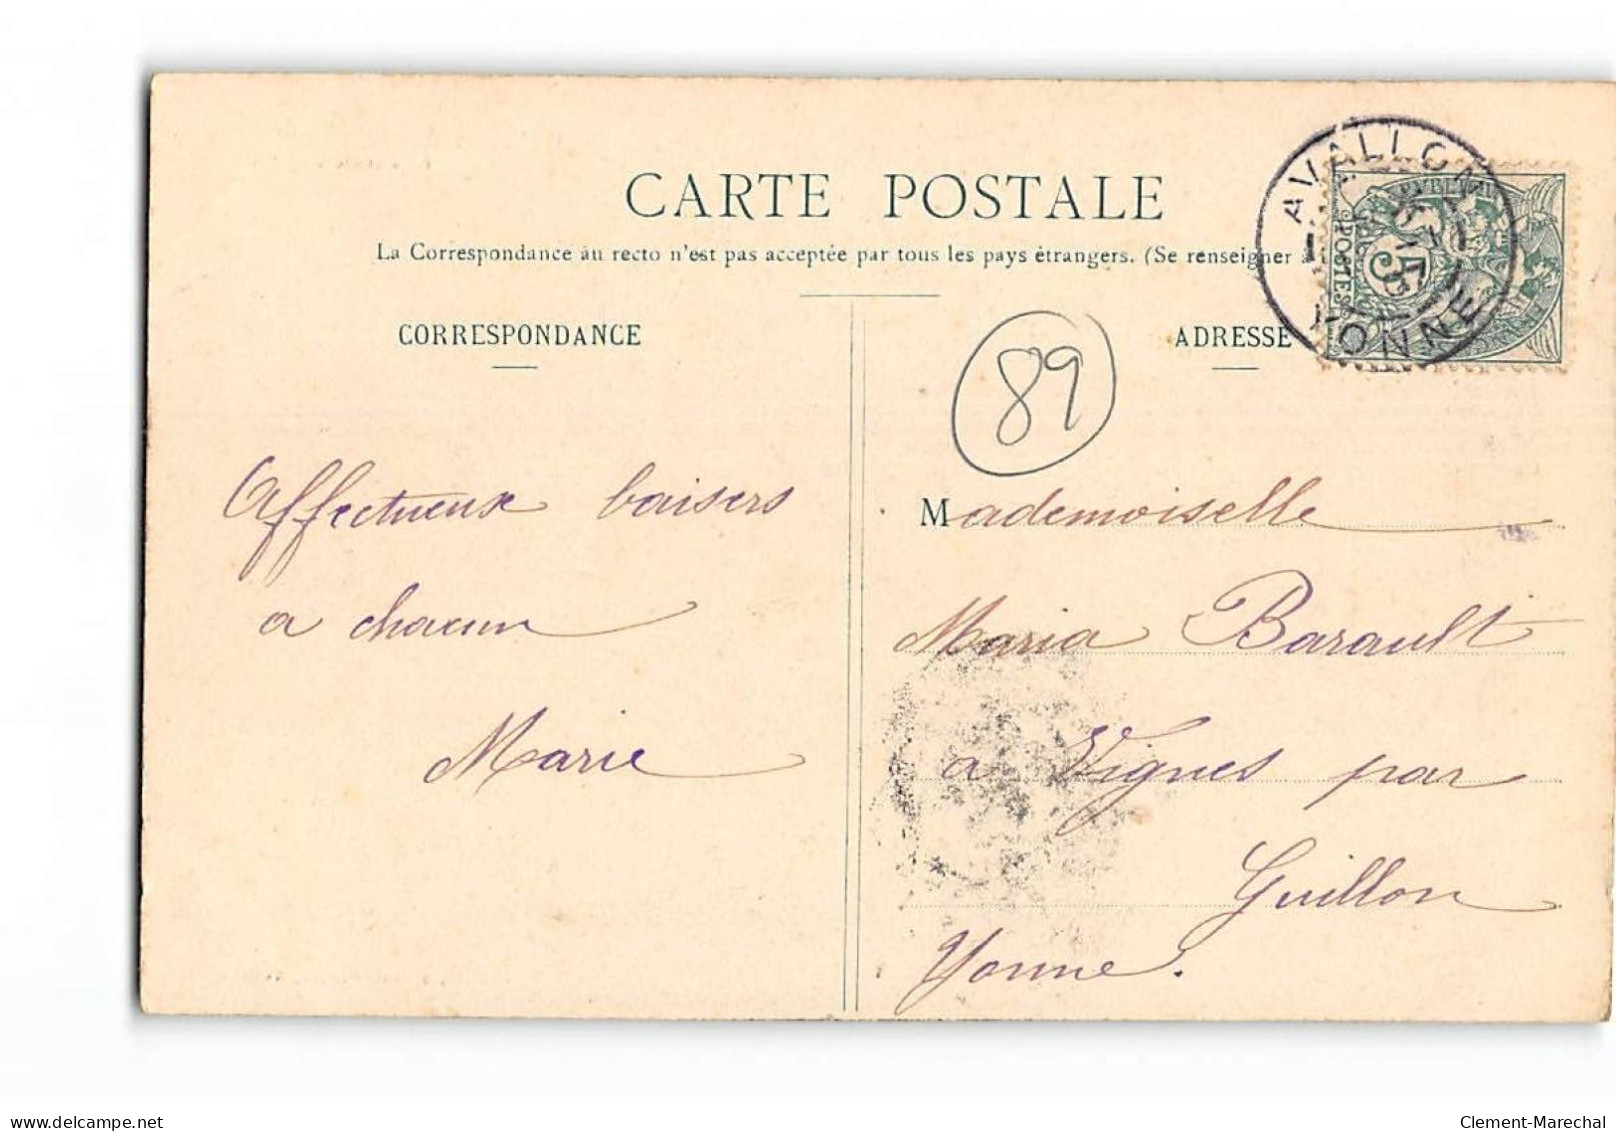 CARTE POSTALE
La Correspondance au recto n'est pas acceptée par tous les pays étrangers. (Se renseigner
CORRESPONDANCE
ADRESSE
AVALLON
YONNE
POSTES
89
Affectueux baisers
a chacun
Marie
Mademoiselle
Maria Barault
a Vignes par
Guillon
Yonne.
delcampe.net
Clement-Marechal